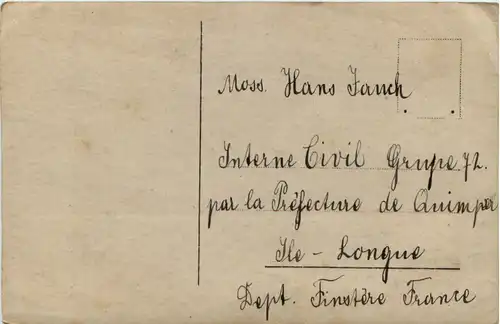 Moss. Hans Jauch
Interne Civil Grupe 72.
par la Préfecture de Quimper
Ile - Longue
Dept. Finstère France